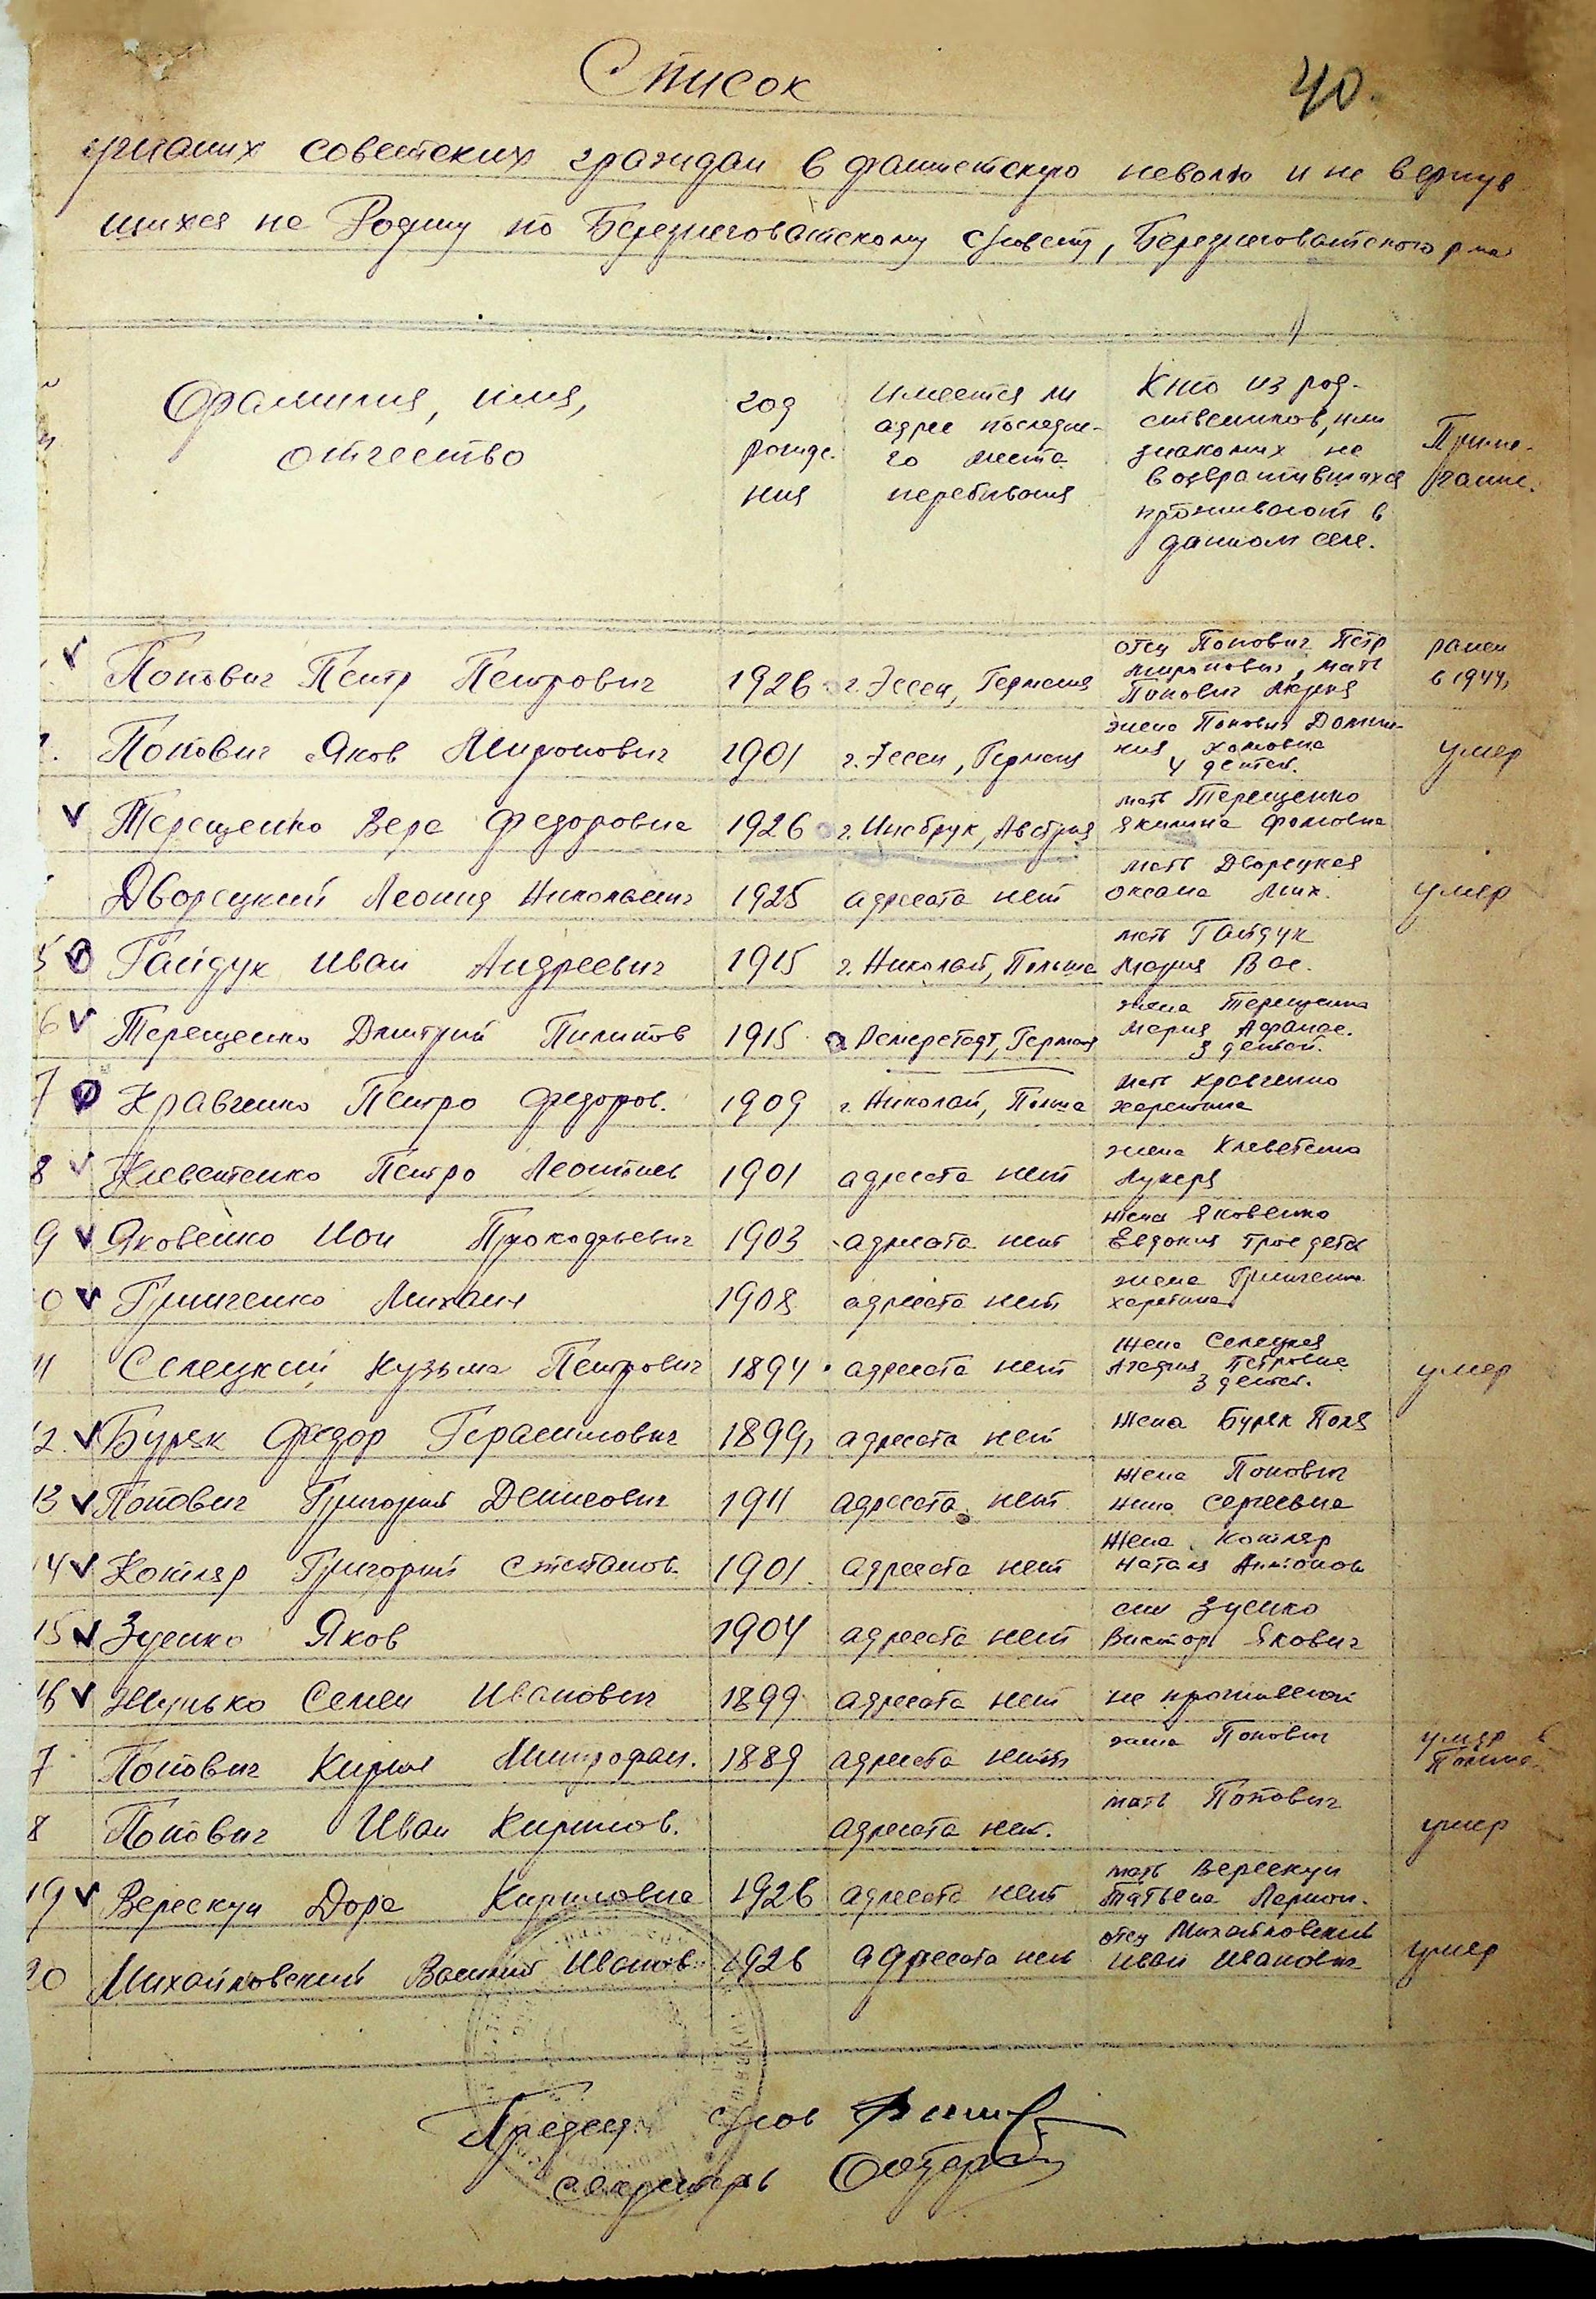 Список
40.
угнаних советских граждан в фашистскую неволю и не вернув
шихся на Родину по Березнеговатскому с/совету, Березнеговатского р-на
Фамилия, имя,
отчество
год
рожде.
ния
Имеется ли
адрес последне-
го места
перебывания
Кто из род-
ственников, или
знакомих не
возвратившихся
проживают в
данном селе.
Приме-
чание.
Попович Петр Петрович 1926 г. Эссен, Германия
отец Попович Петр
Миронович, мать
Попович Мария
ранен
в 1944,
2. Попович Яков Миронович 1901 г. Эссен, Германия
жена Попович Домни-
кия Хомовна
4 детей.
умер
Терещенко Вера Федоровна 1926 г. Инсбрук, Австрия
мать Терещенко
Якилина Фомовна
Дворецкий Леонид Николаевич 1925 адресата нет
мать Дворецкая
Оксана Мих.
умер
5 Гайдук Иван Андреевич 1915 г. Николай, Польша
мать Гайдук
Мария Вас.
6 Терещенко Дмитрий Пилипов 1915 Демерстадт, Германия
жена Терещенко
Мария Афанас.
3 детей.
7 Кравченко Петро Федоров. 1909 г. Николай, Польша
мать Кравченко
Харетина
8 Клеветенко Петро Леонтиев 1901 адресата нет
жена Клеветенко
Лукеря
9 Яковенко Ион Прокофьевич 1903 адресата нет
жена Яковенко
Евдокия трое детей
0 Гринченко Михаил 1908 адресата нет
жена Гринченко
Харетина
11 Селецкий Кузьма Петрович 1894 адресата нет
жена Селецкая
Агафия Петровна
3 детей.
умер
12. Буряк Федор Герасимович 1899, адресата нет
жена Буряк Поля
13 Попович Григорий Денисович 1911 адресата нет
жена Попович
Нина Сергеевна
14 Котляр Григорий Степанов. 1901 адресата нет
жена Котляр
Наталя Антонов
15 Зуенко Яков 1904 адресата нет
син Зуенко
Виктор Якович
16 Жунько Семен Иванович 1899 адресата нет не проживают
7 Попович Кирил Митрофан. 1889 адресата нет
жена Попович
умер в
Польше
8 Попович Иван Кирилов. адресата нет.
мать Попович
умер
19 Верескун Дора Кириловна 1926 адресата нет
мать Верескун
Татьяна Ларион.
20 Михайловский Василий Иванов 1926 адресата нет
отец Михайловский
Иван Иванович
умер
Председ. с/сов
секретарь